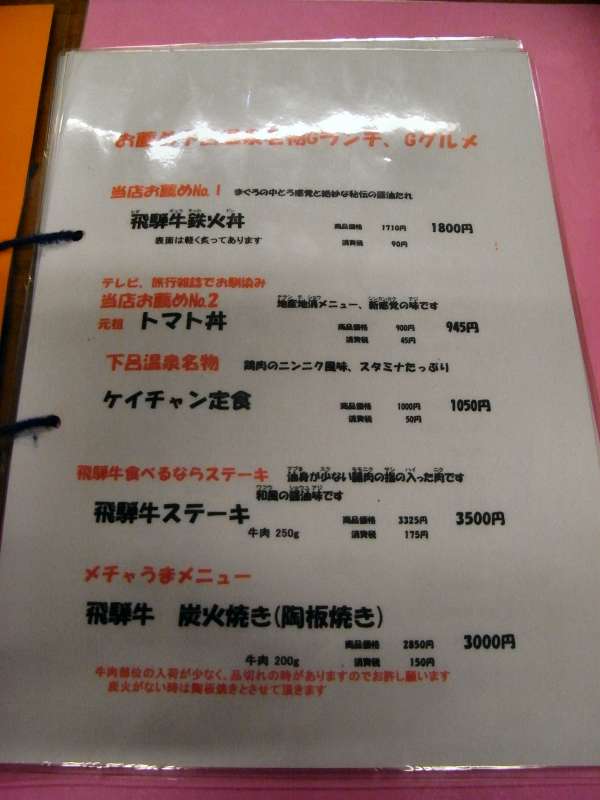 お薦め下呂温泉名物Gランチ、Gグルメ
当店お薦めNo.1 まぐろの中とろ感覚と絶妙な秘伝の醤油たれ
飛騨牛鉄火丼 商品価格 1710円 1800円
表面は軽く炙ってあります 消費税 90円
テレビ、旅行雑誌でお馴染み
当店お薦めNo.2 地産地消メニュー、新感覚の味です
元祖 トマト丼 商品価格 900円 945円
消費税 45円
下呂温泉名物 鶏肉のニンニク風味、スタミナたっぷり
ケイチャン定食 商品価格 1000円 1050円
消費税 50円
飛騨牛食べるならステーキ 油身が少ない肉の入った肉です
和風の醤油味です
飛騨牛ステーキ 商品価格 3325円 3500円
牛肉 250g 消費税 175円
メチャうまメニュー
飛騨牛 炭火焼き(陶板焼き)
商品価格 2850円 3000円
牛肉 200g 消費税 150円
牛肉部位の入荷が少なく、品切れの時がありますのでお許し願います
炭火がない時は陶板焼きとさせて頂きます